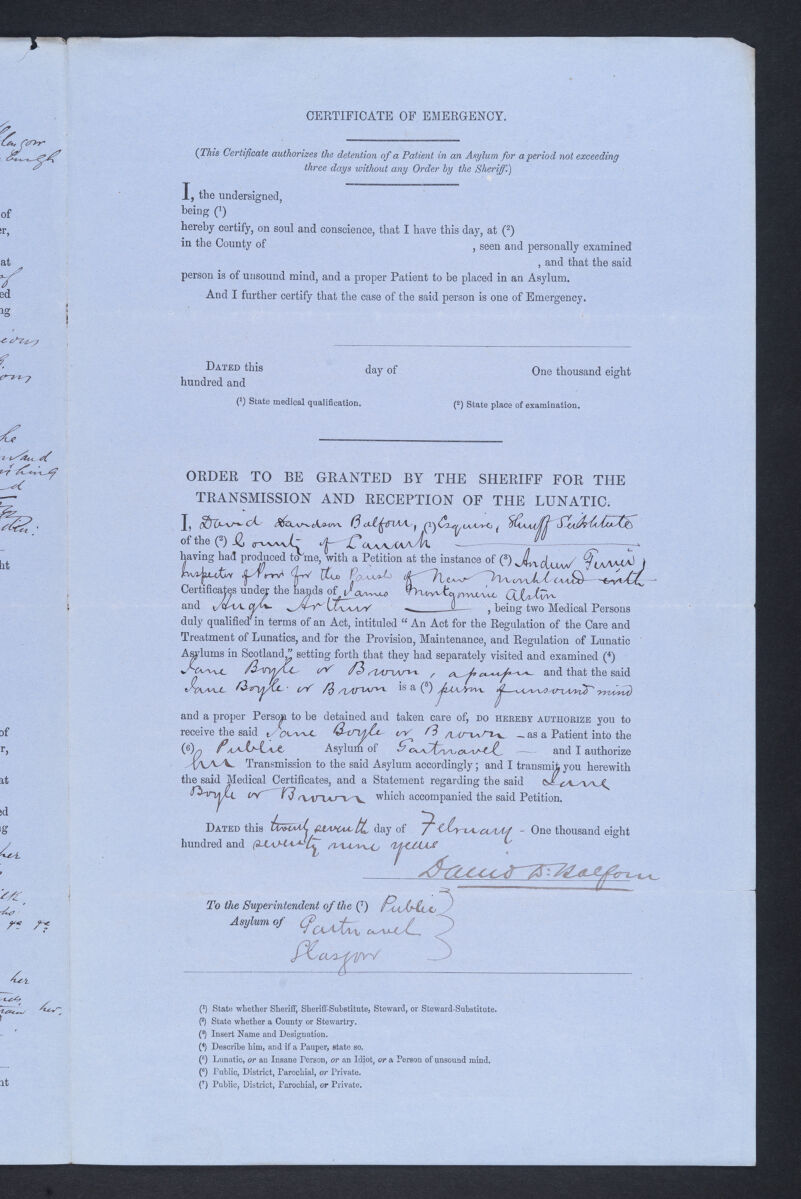 CERTIFICATE OF EMERGENCY.
(This Certificate authorizes the detention of a Patient in an Asylum for a period not exceeding
three days without any Order by the Sheriff.)
I, the undersigned,
being (1)
hereby certify, on soul and conscience, that I have this day, at (2)
in the County of , seen and personally examined
, and that the said
person is of unsound mind, and a proper Patient to be placed in an Asylum.
And I further certify that the case of the said person is one of Emergency.
DATED this day of One thousand eight
hundred and
(1) State medical qualification. (2) State place of examination.
ORDER TO BE GRANTED BY THE SHERIFF FOR THE
TRANSMISSION AND RECEPTION OF THE LUNATIC.
I, David Davidson Balfour, (1) Esquire, Sheriff Substitute
of the (2) County of Lanark
having had produced to me, with a Petition at the instance of (3) Andrew
Inspector of Poor for the Parish of New Monkland with
Certificates under the hands of James Montgomerie Alston
and Hugh Arthur , being two Medical Persons
duly qualified in terms of an Act, intituled “ An Act for the Regulation of the Care and
Treatment of Lunatics, and for the Provision, Maintenance, and Regulation of Lunatic
Asylums in Scotland,” setting forth that they had separately visited and examined (4)
Jane Boyle or Brown, a pauper and that the said
Jane Boyle or Brown is a (5) person of unsound mind
and a proper Person to be detained and taken care of, DO HEREBY AUTHORIZE you to
receive the said Jane Boyle or Brown – as a Patient into the
(6) Public Asylum of Gartnavel — and I authorize
her Transmission to the said Asylum accordingly; and I transmit you herewith
the said Medical Certificates, and a Statement regarding the said Jane
Boyle or Brown which accompanied the said Petition.
DATED this twenty seventh day of February - One thousand eight
hundred and seventy nine years
David D: Balfour
To the Superintendent of the (7) Public
Asylum of Gartnavel
Glasgow
(1) State whether Sheriff, Sheriff-Substitute, Steward, or Steward-Substitute.
(2) State whether a County or Stewartry.
(3) Insert Name and Designation.
(4) Describe him, and if a Pauper, state so.
(5) Lunatic, or an Insane Person, or an Idiot, or a Person of unsound mind.
(6) Public, District, Parochial, or Private.
(7) Public, District, Parochial, or Private.